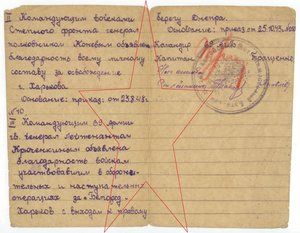 II Командующим войсками
Степного фронта генерал
полковником Коневым объявлена
благодарность всему личному
составу за освобождение
г. Харькова
Основание: приказ: от 23.8.43г.
№ 10
III Командующим 69 армии
генерал лейтенантом
Крюченкиным объявлена
благодарность войскам
участвовавшим в оборони-
тельных и наступательных
операциях за Белгород-
Харьков с выходом к правому
берегу Днепра.
Основание: приказ от 25.10.43г.
Командир
Капитан